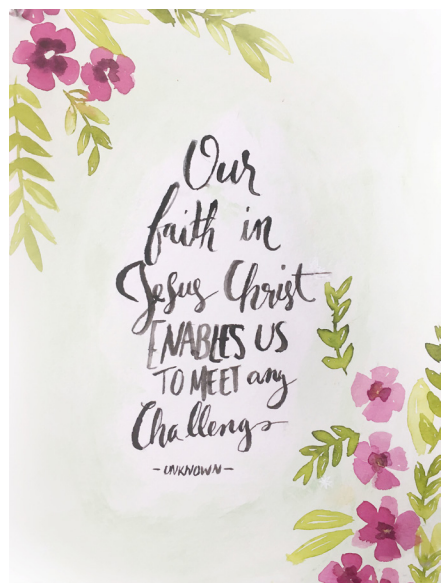 Our
faith in
Jesus Christ
ENABLES US
TO MEET any
Challenge
- UNKNOWN -